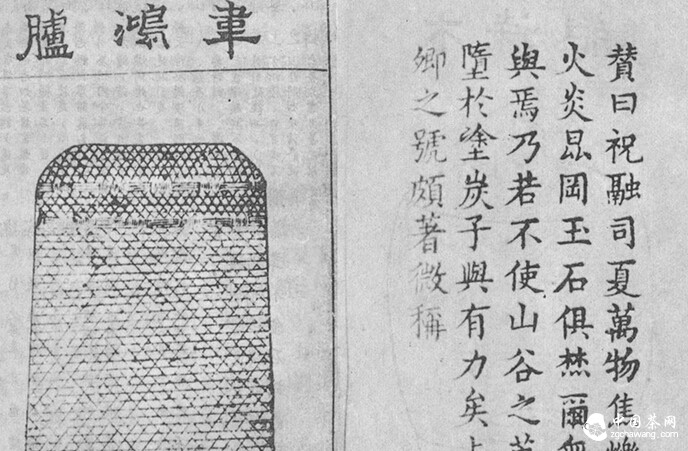 贊曰祝融司夏萬物焦爍
火炎昆岡玉石俱焚爾無
與焉乃若不使山谷之英
墮於塗炭子與有力矣上
卿之號頗著微稱
韋鴻臚
中国茶网
zgchawang.com